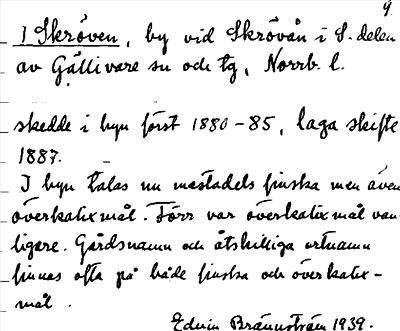 9.
I Skröven, by vid Skrövån i S. delen
av Gällivare sn och tg, Norrb. l.
skedde i byn först 1880-85, laga skifte
1887.
I byn talas nu mestadels finska men även
överkalixmål. Förr var överkalixmål van-
ligare. Gårdsnamn och åtskilliga ortnamn
finnas ofta på både finska och överkalix-
mål.
Edvin Brännström 1939.